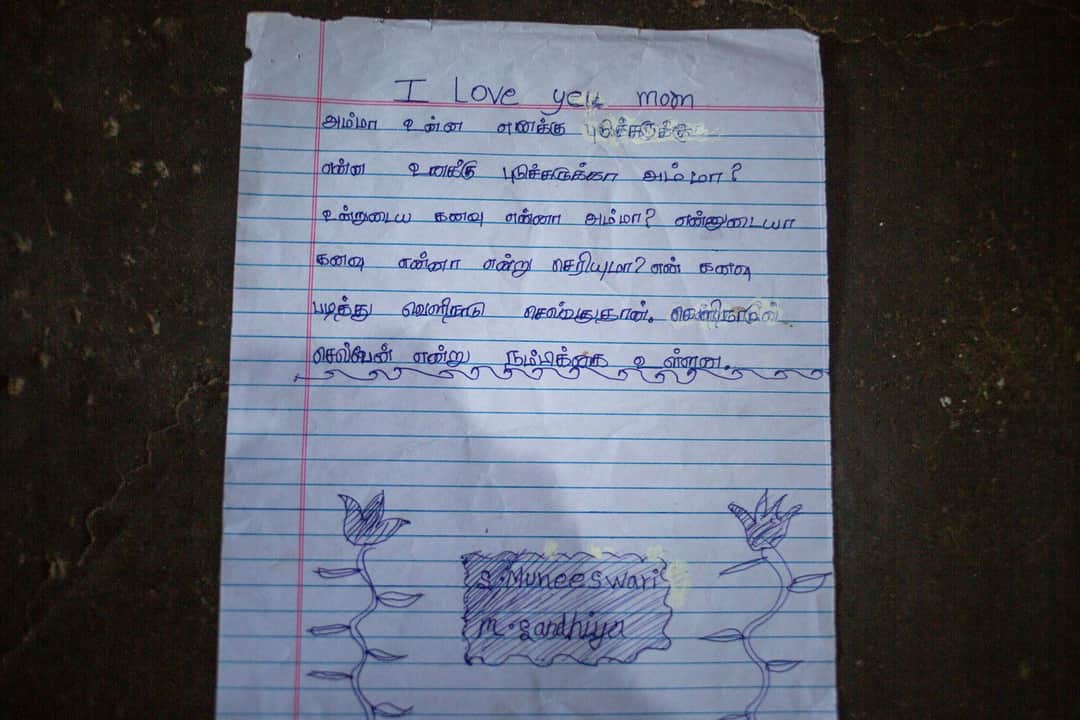 I Love you mom
அம்மா உன்ன எனக்கு புடிச்சருக்கு
என்ன உனக்கு புடிச்சருக்கா அம்மா?
உன்னுடைய கனவு என்னா அம்மா? என்னுடையா
கனவு என்னா என்று செரியுமா? என் கனவு
படித்து வெளிநாடு செல்வதுதான்.
செல்வேன் என்று நம்பிக்கை உள்ளன.
S.Muneeswari
M.Sandhiya